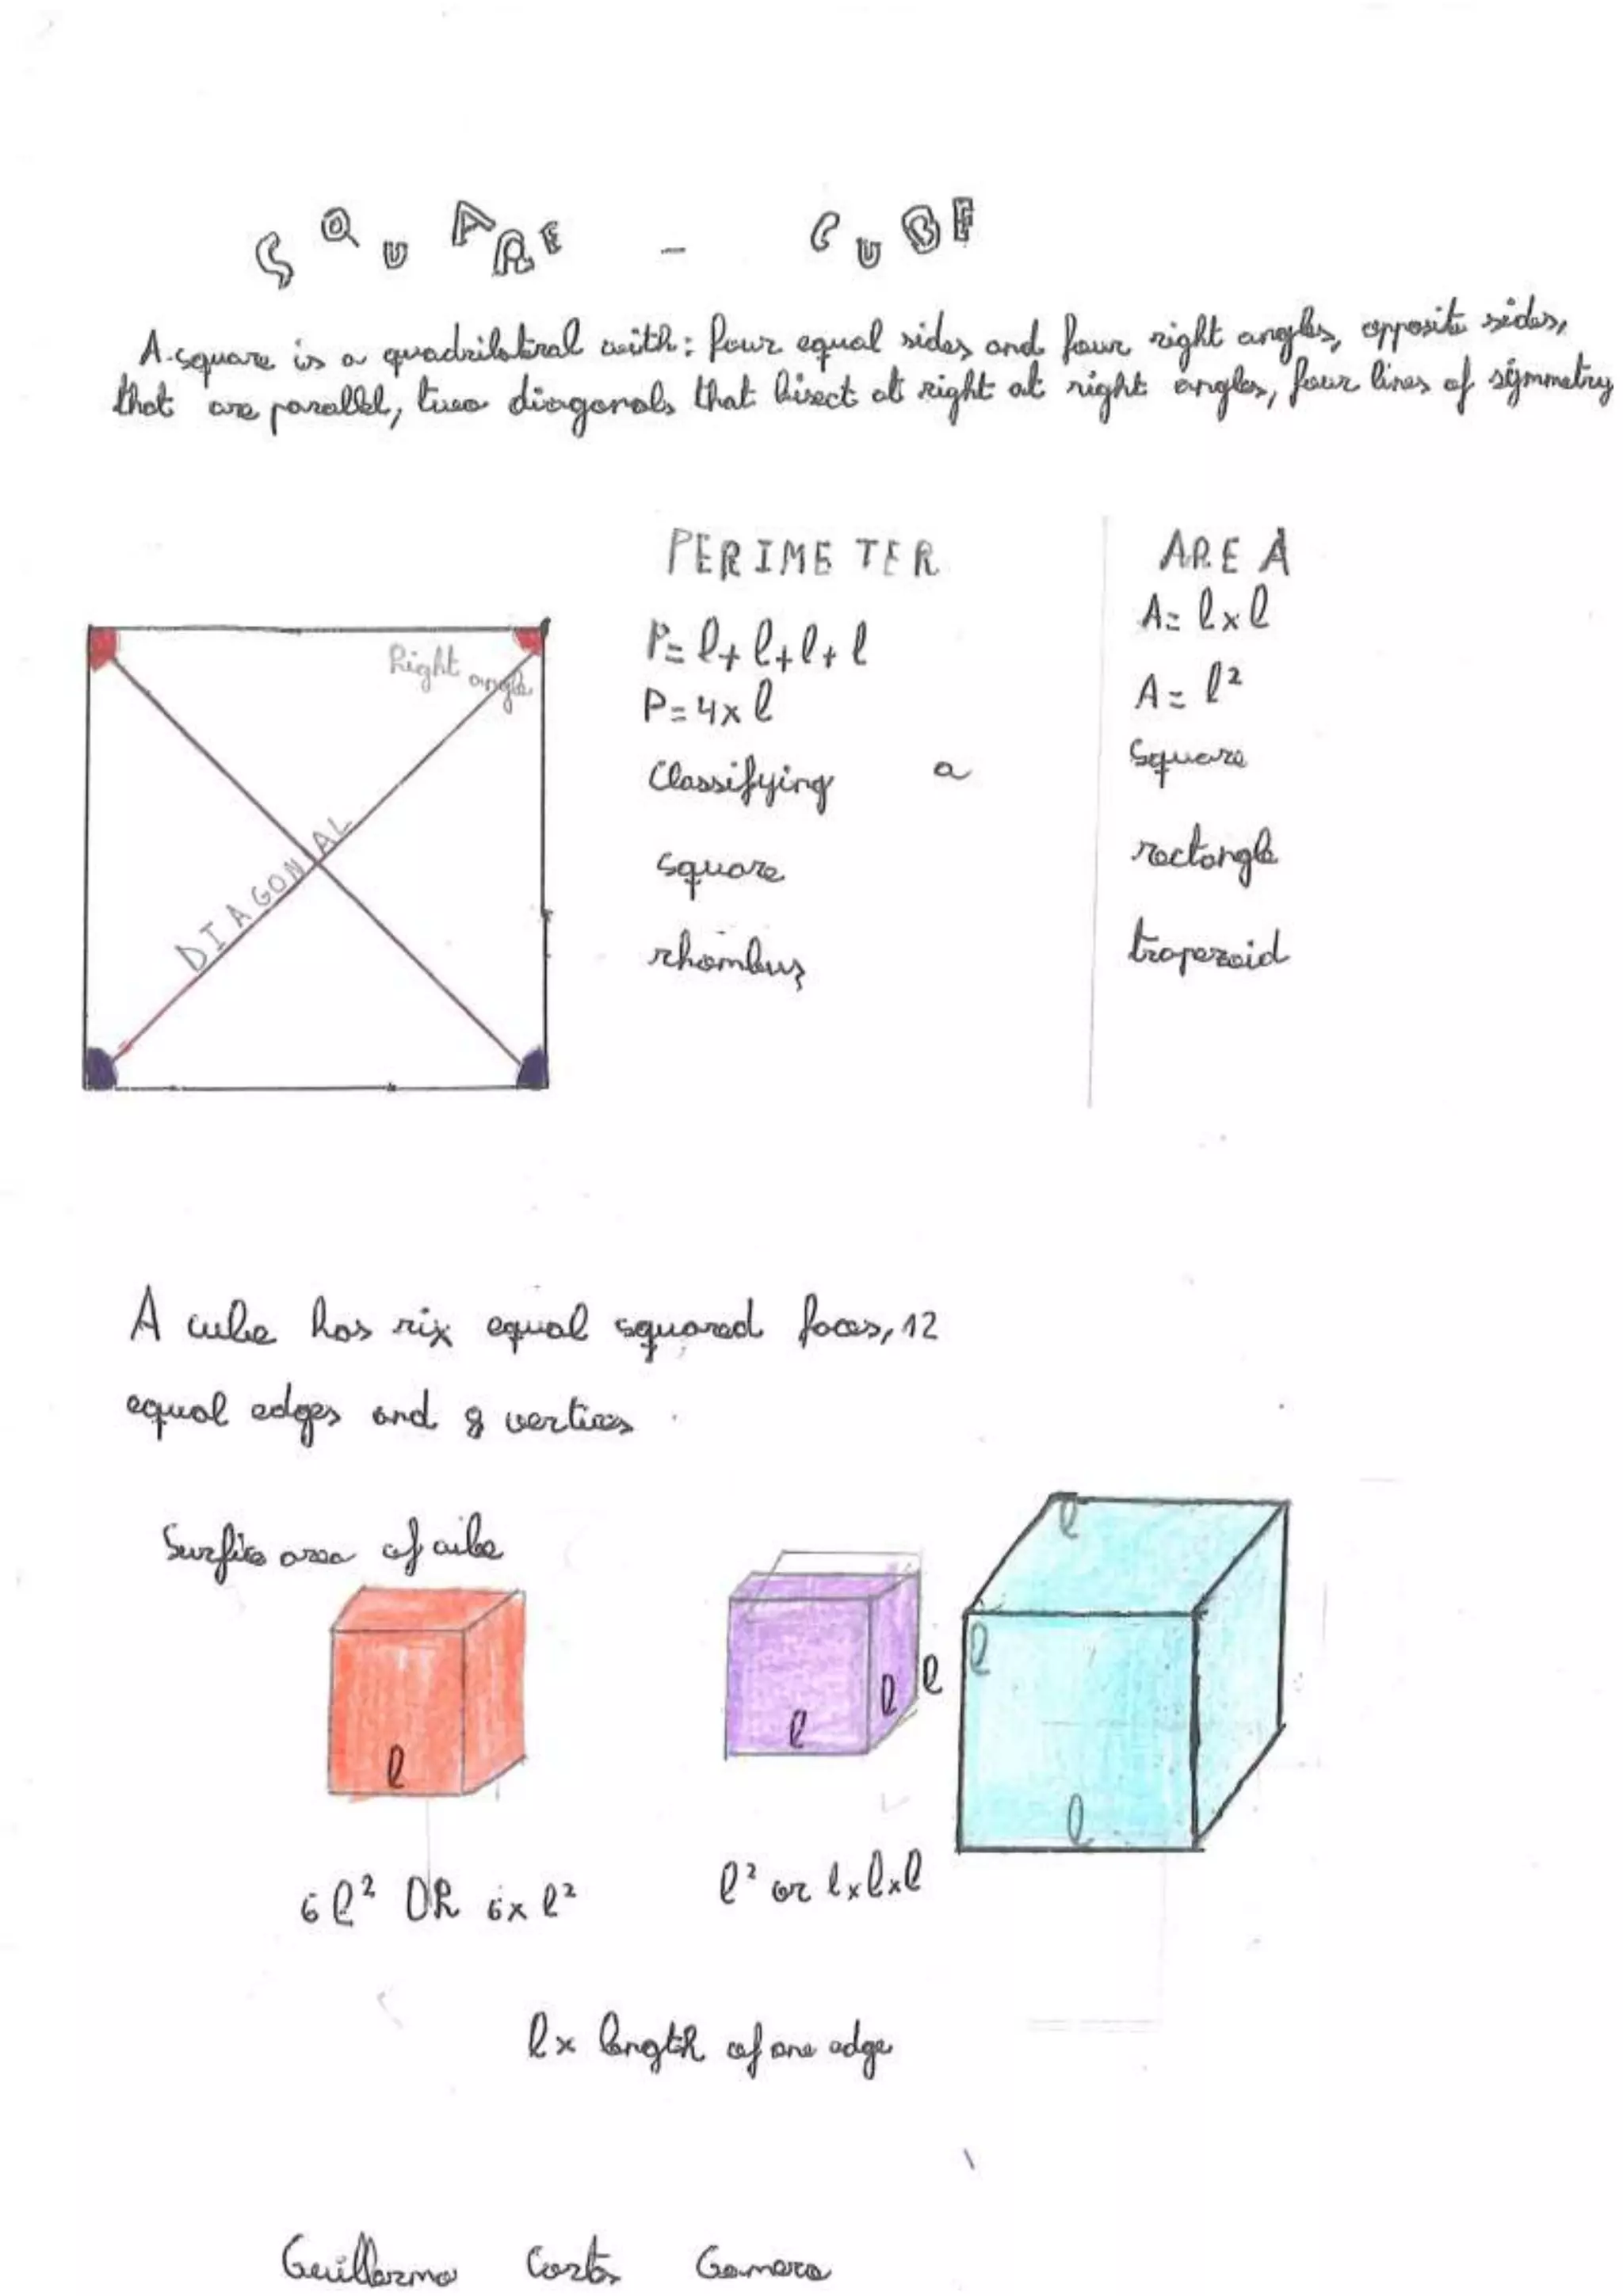 SQUARE - CUBE
A square is a quadrilateral with: four equal sides and four right angles, opposite sides,
that are parallel, two diagonals that bisect at right at right angles, four lines of symmetry
PERIMETER AREA
P= l+ l+l+ l A= l x l
P= 4x l A= l²
Right angle
Classifying a square
square rectangle
DIAGONAL
rhombus trapezoid
A cube has six equal squared faces, 12
equal edges and 8 vertices
Surfice area of cube
l
l
l
l
l
l
l
6l² OR 6x l²
l² or l x l x l
l x length of one edge
Guillermo Cortes Gamero